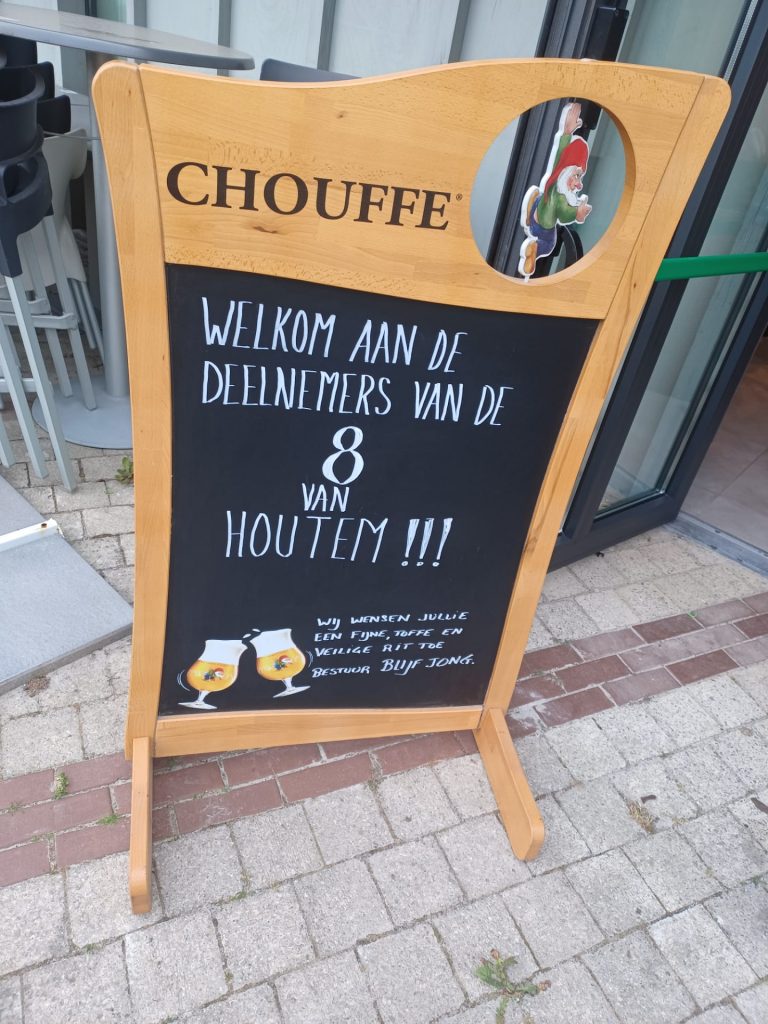 CHOUFFE®
WELKOM AAN DE
DEELNEMERS VAN DE
8
VAN
HOUTEM !!!
WIJ WENSEN JULLIE
EEN FIJNE, TOFFE EN
VEILIGE RIT TOE
BESTUUR BLIJF JONG.